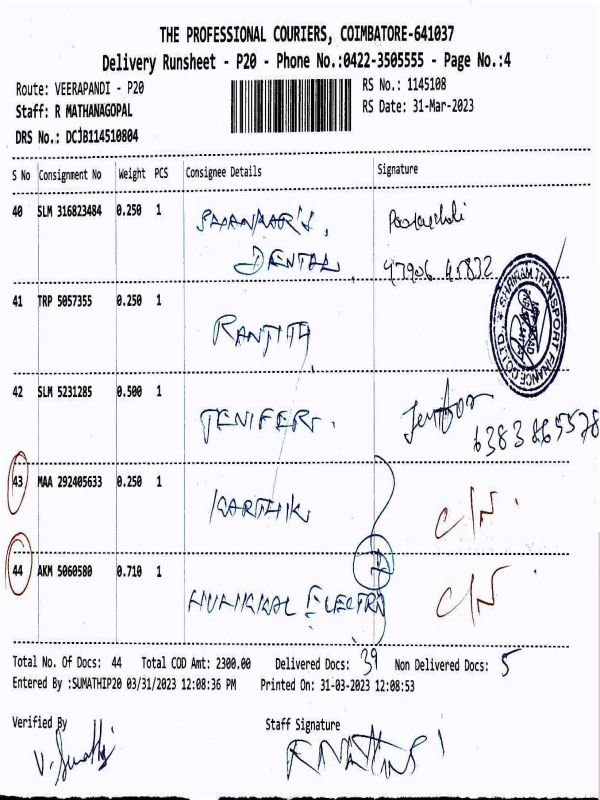 THE PROFESSIONAL COURIERS, COIMBATORE-641037
Delivery Runsheet - P20 - Phone No.:0422-3505555 - Page No.:4
Route: VEERAPANDI - P20
RS No.: 1145108
Staff: R MATHANAGOPAL
RS Date: 31-Mar-2023
DRS No.: DCJB114510804
S No Consignment No Weight PCS Consignee Details Signature
40 SLM 316823484 0.250 1 SHANKAR'S,
DENTAL
41 TRP 5057355 0.250 1 RANJITH
SHRIRAM TRANSPORT FINANCE CO.LTD.,
42 SLM 5231285 0.500 1 JENIFER.
43 MAA 292405633 0.250 1 KARTHIK C/N
44 AKM 5060580 0.710 1 ELECTRA C/N
Total No. Of Docs: 44 Total COD Amt: 2300.00 Delivered Docs: 39 Non Delivered Docs: 5
Entered By :SUMATHIP20 03/31/2023 12:08:36 PM Printed On: 31-03-2023 12:08:53
Verified By Staff Signature
V. Sumathi